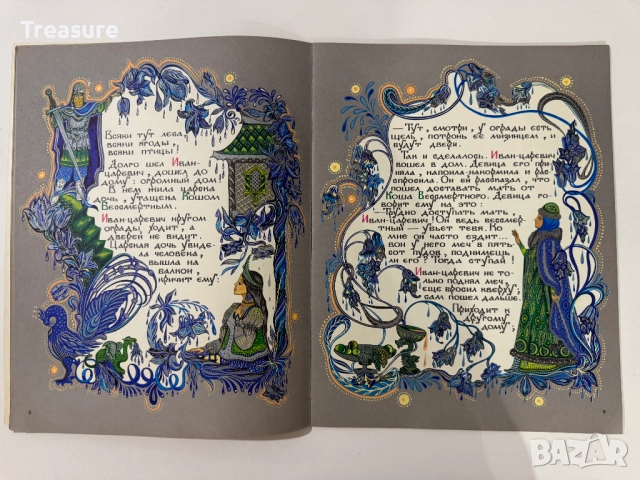 Treasure
Всяки тут леса,
всяки ягоды,
всяки птицы!
Долго шел Иван-
царевич, дошел до
дому; огромный дом.
В нем жила царска
дочь, утащена Кошом
Бессмертным.
Иван-царевич кругом
ограды ходит, а
дверей не видит.
Царская дочь увиде-
ла человека,
вышла на
балкон,
кричит ему:
8
— Тут, смотри, у ограды есть
щель, потронь ее мизинцем, и
будут двери.
Так и сделалось. Иван-царевич
вошел в дом. Девица его при-
няла, напоила-накормила и рас-
спросила. Он ей рассказал, что
пошел доставать мать от
Коша Бессмертного. Девица го-
ворит ему на это:
—Трудно доступать мать,
Иван-царевич! Он ведь бессмер-
тный — убьет тебя. Ко
мне он часто ездит...
вон у него меч в пять-
сот пудов, поднимешь
ли его? Тогда ступай!
Иван-царевич не то-
лько поднял меч,
еще бросил кверху;
сам пошел дальше.
Приходит к
другому
дому;
9
BAZAR
.bg